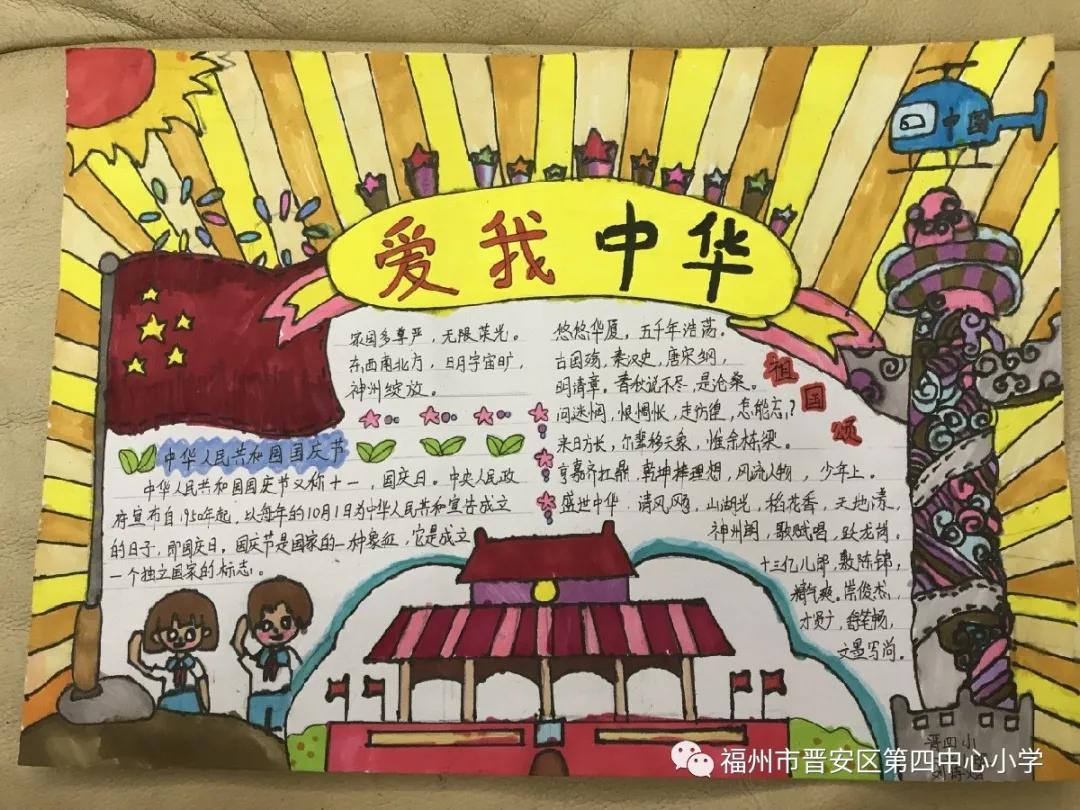 中国
爱我中华
家国多尊严，无限荣光。
东西南北方，日月宇宙旷，
神州绽放。
悠悠华厦，五千年浩荡。
古国殇，秦汉史，唐宋纲，
明清章。春秋说不尽，是沧桑。
问迷惘，恨惆怅，走彷徨，怎能忘？
来日方长，尔辈移天象，惟余栋梁。
亨嘉齐扛鼎，乾坤捧理想，风流人物，少年上。
盛世中华，清风，山湖光，稻花香，天地
神州阔，歌赋唱，跃龙岗。
十三亿儿郎，敷陈锦，
气爽。崇俊杰，
才贤，舒笔畅，
文墨写尚。
祖国颂
中华人民共和国国庆节
中华人民共和国国庆节又称十一，国庆日。中央人民政
府宣布自1950年起，以每年的10月1日为中华人民共和宣告成立
的日子，即国庆日。国庆节是国家的一种象征，它是成立
一个独立国家的标志。
晋四小
福州市晋安区第四中心小学